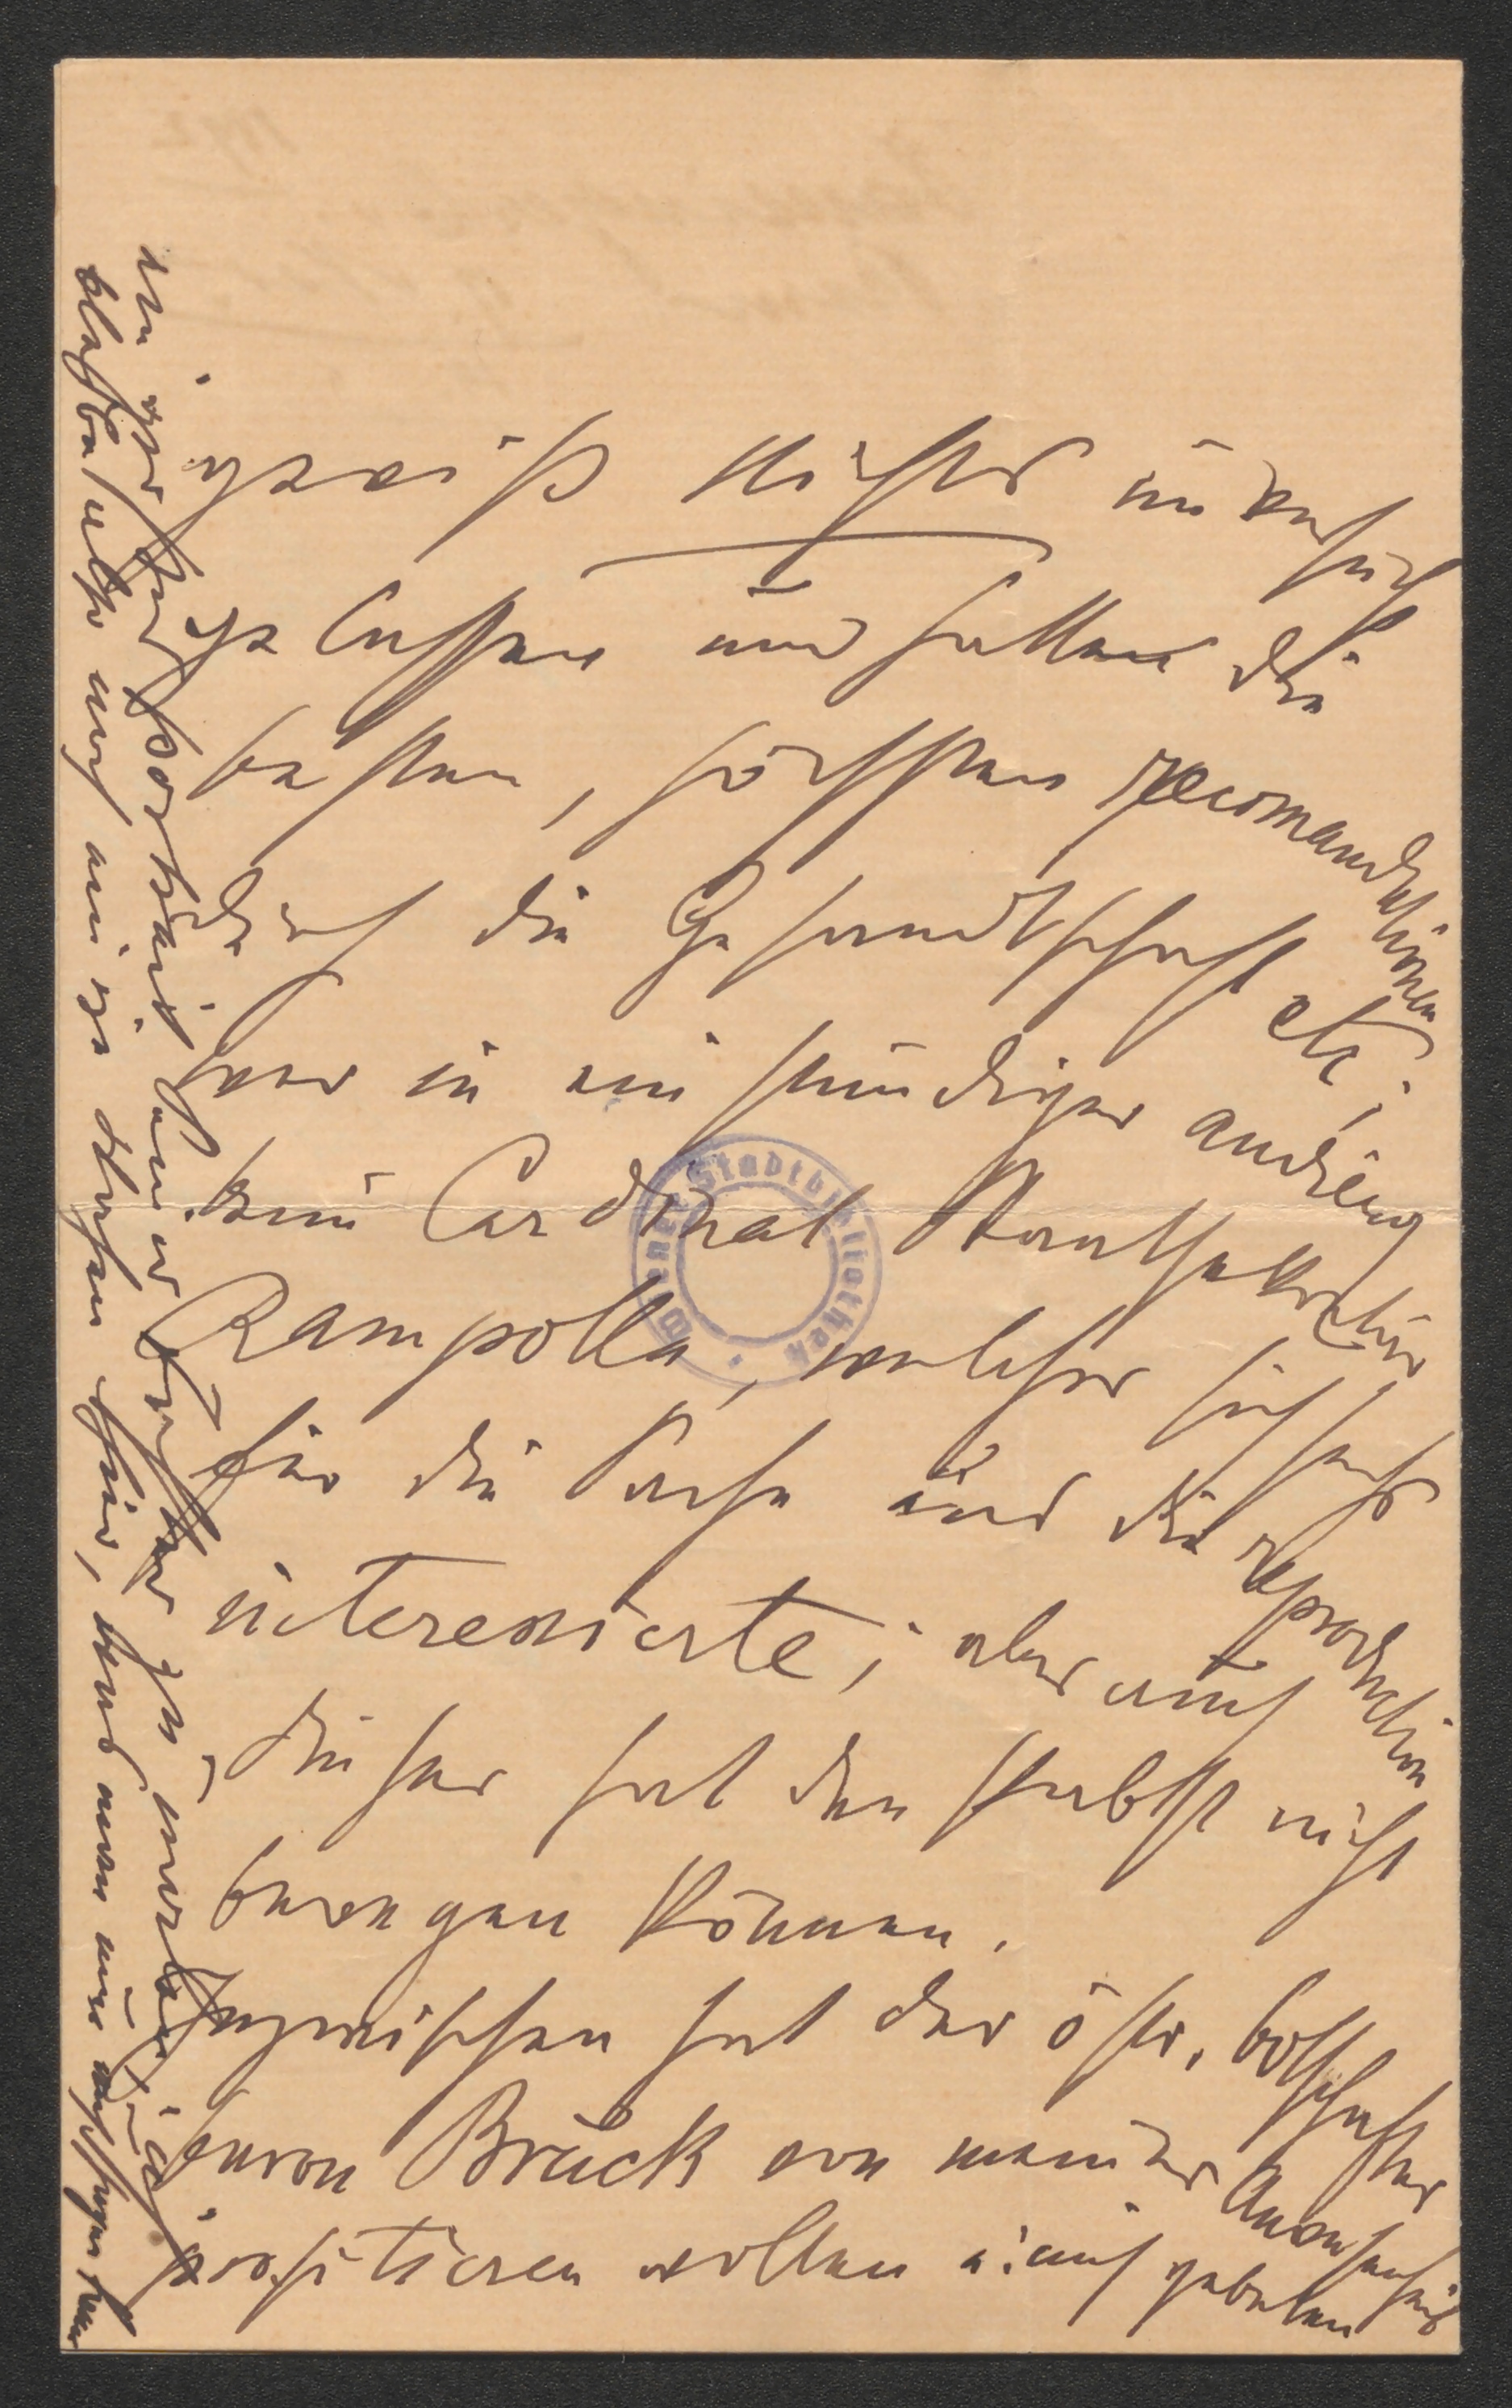 gewiß Nichts unversucht
gelassen und hatten die
besten, höchsten recomandationen
durch die Gesandtschaft etc;
war in einstündiger audienz
beim Cardinal Staatssekretär
Rampolla, welcher sich sehr
für die Sache und die reproduction
interessierte; aber auch
dieser hat den Pabst nicht
bewegen können.
Inzwischen hat der östr. Botschafter
Baron Brück von meiner Anwesenheit
profitieren wollen u: mich gebeten
Wiener Stadtbibliothek